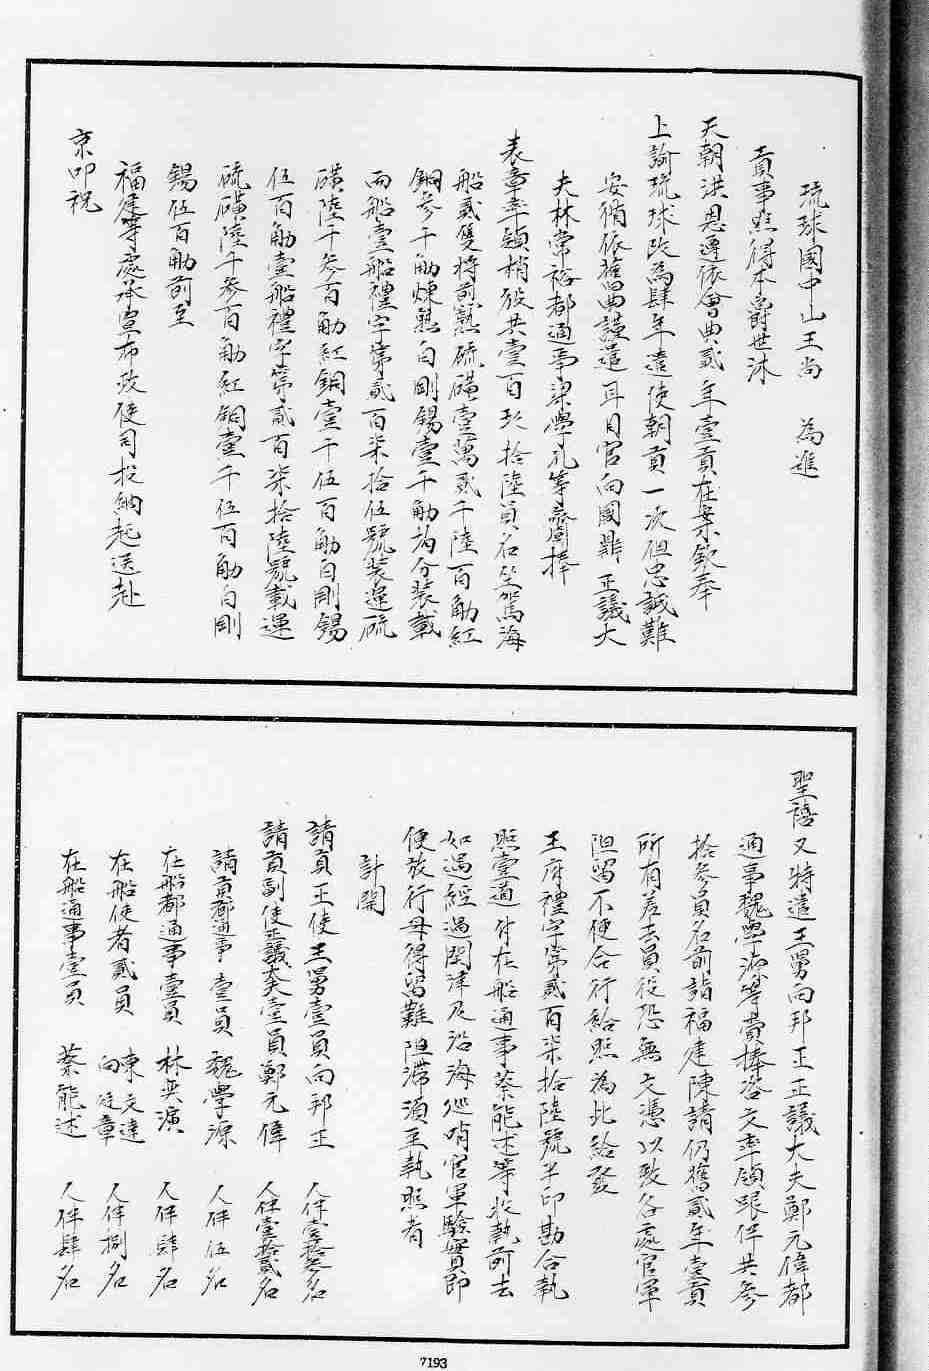 琉球國中山王尚　為進
貢事照得本爵世沐
天朝洪恩遵依會典貳年壹貢在案欽奉
上諭琉球改為肆年遣使朝貢一次但忠誠難
安循依舊典謹遣耳目官向國鼎正議大
夫林常裕都通事梁學孔等齎捧
表章率領梢役共壹百玖拾陸員名坐駕海
船貳隻將煎熟硫磺壹萬貳千陸百觔紅
銅參千觔煉熟白剛錫壹千觔均分裝載
兩船壹船禮字第貳百柒拾伍號裝運硫
磺陸千參百觔紅銅壹千伍百觔白剛錫
伍百觔壹船禮字第貳百柒拾陸號載運
硫磺陸千參百觔紅銅壹千伍百觔白剛
錫伍百觔前至
福建等處承宣布政使司投納起送赴
京叩祝
聖禧又特遣王舅向邦正正議大夫鄭元偉都
通事魏學源等賫捧咨文率領跟伴共參
拾參員名前詣福建陳請仍舊貳年壹貢
所有差去員役恐無文憑以致各處官軍
阻留不便合行給照為此給發
王府禮字第貳百柒拾陸號半印勘合執
照壹道付在船通事蔡能述等收執前去
如遇經過關津及沿海巡哨官軍驗實即
便放行毋得留難阻滯須至執照者
計開
請貢正使王舅壹員向邦正　人伴壹拾參名
請貢副使正議大夫壹員鄭元偉　人伴壹拾貳名
請貢都通事　壹員　魏學源　人伴伍名
在船都通事壹員　林奕演　人伴肆名
在船使者貳員　東文達　向廷章　人伴捌名
在船通事壹員　蔡能述　人伴肆名
7193